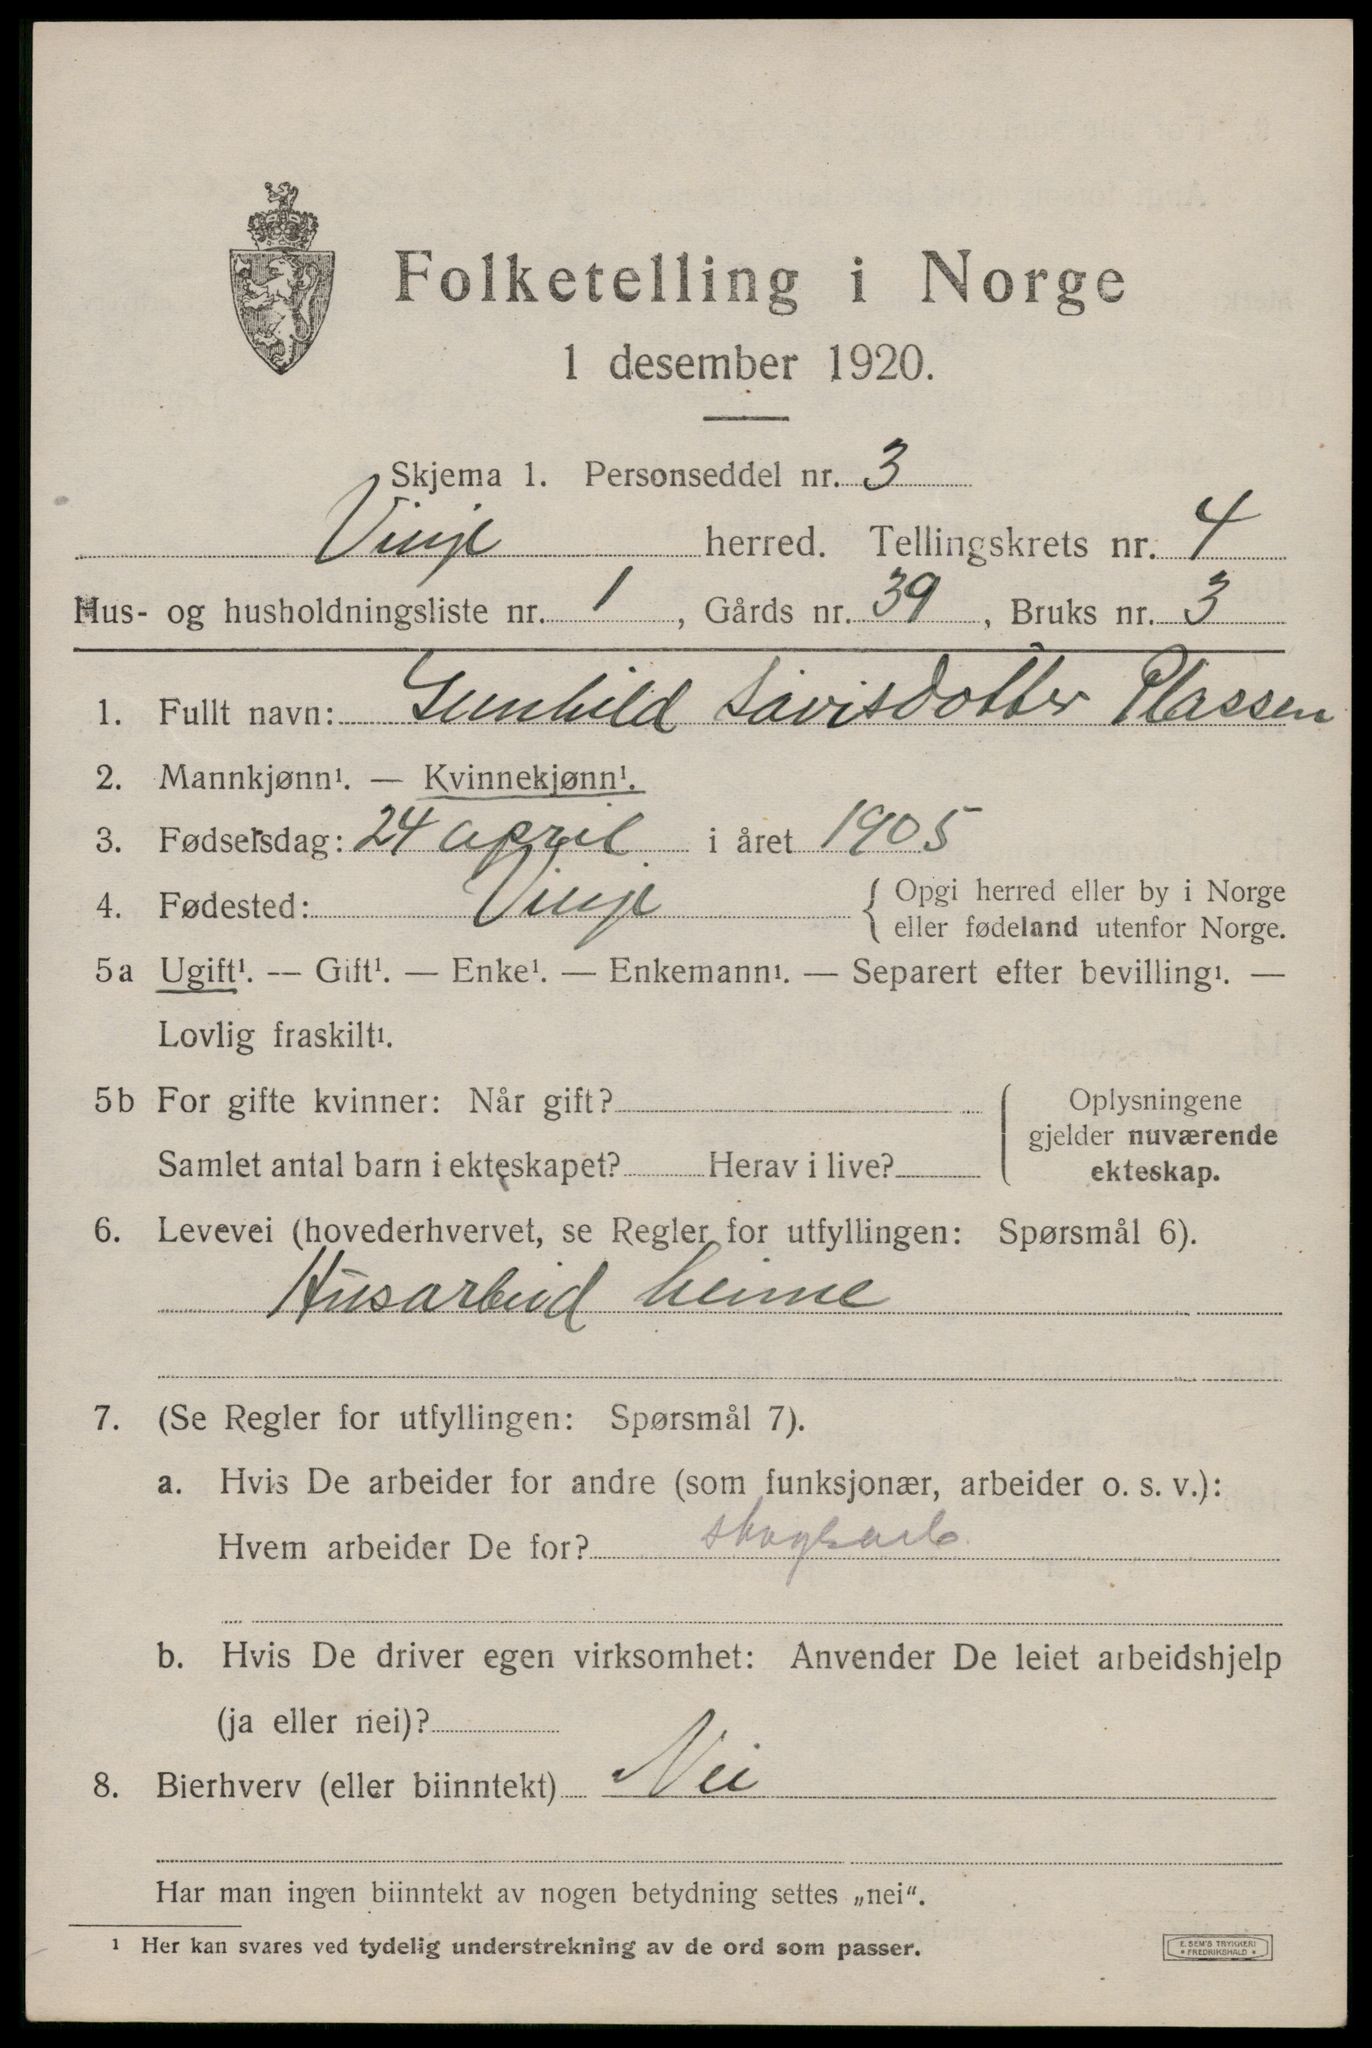 Folketelling i Norge
1 desember 1920.
Skjema 1. Personseddel nr. 3
Vinje herred. Tellingskrets nr. 4
Hus- og husholdningsliste nr. 1, Gårds nr. 39, Bruks nr. 3
1. Fullt navn: Gunhild Sávisdotter Plassen
2. Mannkjønn¹. — Kvinnekjønn¹.
3. Fødselsdag: 24 april i året 1905
4. Fødested: Vinje { Opgi herred eller by i Norge
eller fødeland utenfor Norge.
5a Ugift¹. — Gift¹. — Enke¹. — Enkemann¹. — Separert efter bevilling¹. —
Lovlig fraskilt¹.
5b For gifte kvinner: Når gift?
Samlet antal barn i ekteskapet? Herav i live?
Oplysningene
gjelder nuværende
ekteskap.
6. Levevei (hovederhvervet, se Regler for utfyllingen: Spørsmål 6).
Húsarbeid heime
7. (Se Regler for utfyllingen: Spørsmål 7).
a. Hvis De arbeider for andre (som funksjonær, arbeider o. s. v.):
Hvem arbeider De for? skogsarb
b. Hvis De driver egen virksomhet: Anvender De leiet arbeidshjelp
(ja eller nei)?
8. Bierhverv (eller biinntekt) Nei
Har man ingen biinntekt av nogen betydning settes „nei“.
¹ Her kan svares ved tydelig understrekning av de ord som passer.
E. SEM'S TRYKKERI
• FREDRIKSHALD •